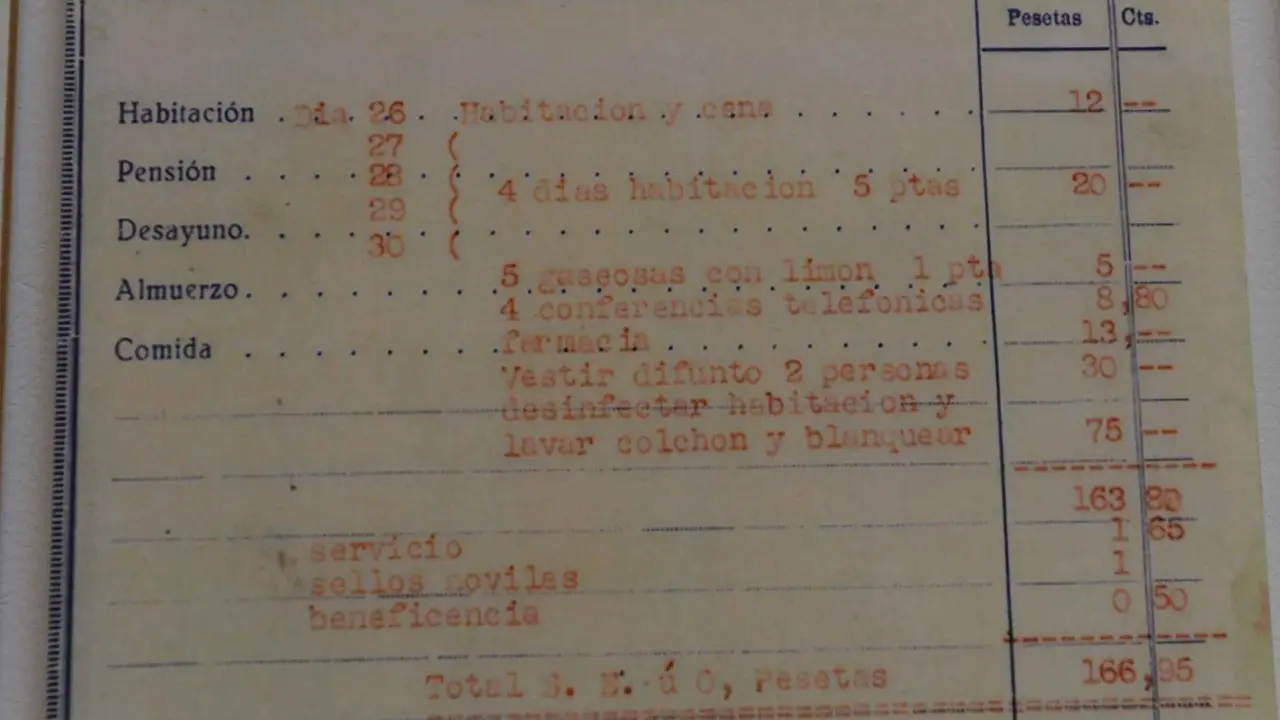 Pesetas Cts.
Habitación . Dia. 26 . . Habitacion y cena 12 --
27 (
Pensión 28 (
4 dias habitacion 5 ptas 20 --
29 (
Desayuno. 30 (
5 gaseosas con limon 1 pta 5 --
Almuerzo.
4 conferencias telefonicas 8,80
Comida farmacia 13,--
Vestir difunto 2 personas 30 --
desinfectar habitacion y
lavar colchon y blanquear 75 --
163 80
servicio 1 65
sellos moviles 1
beneficencia 0 50
Total S. E. ú O, Pesetas 166,95